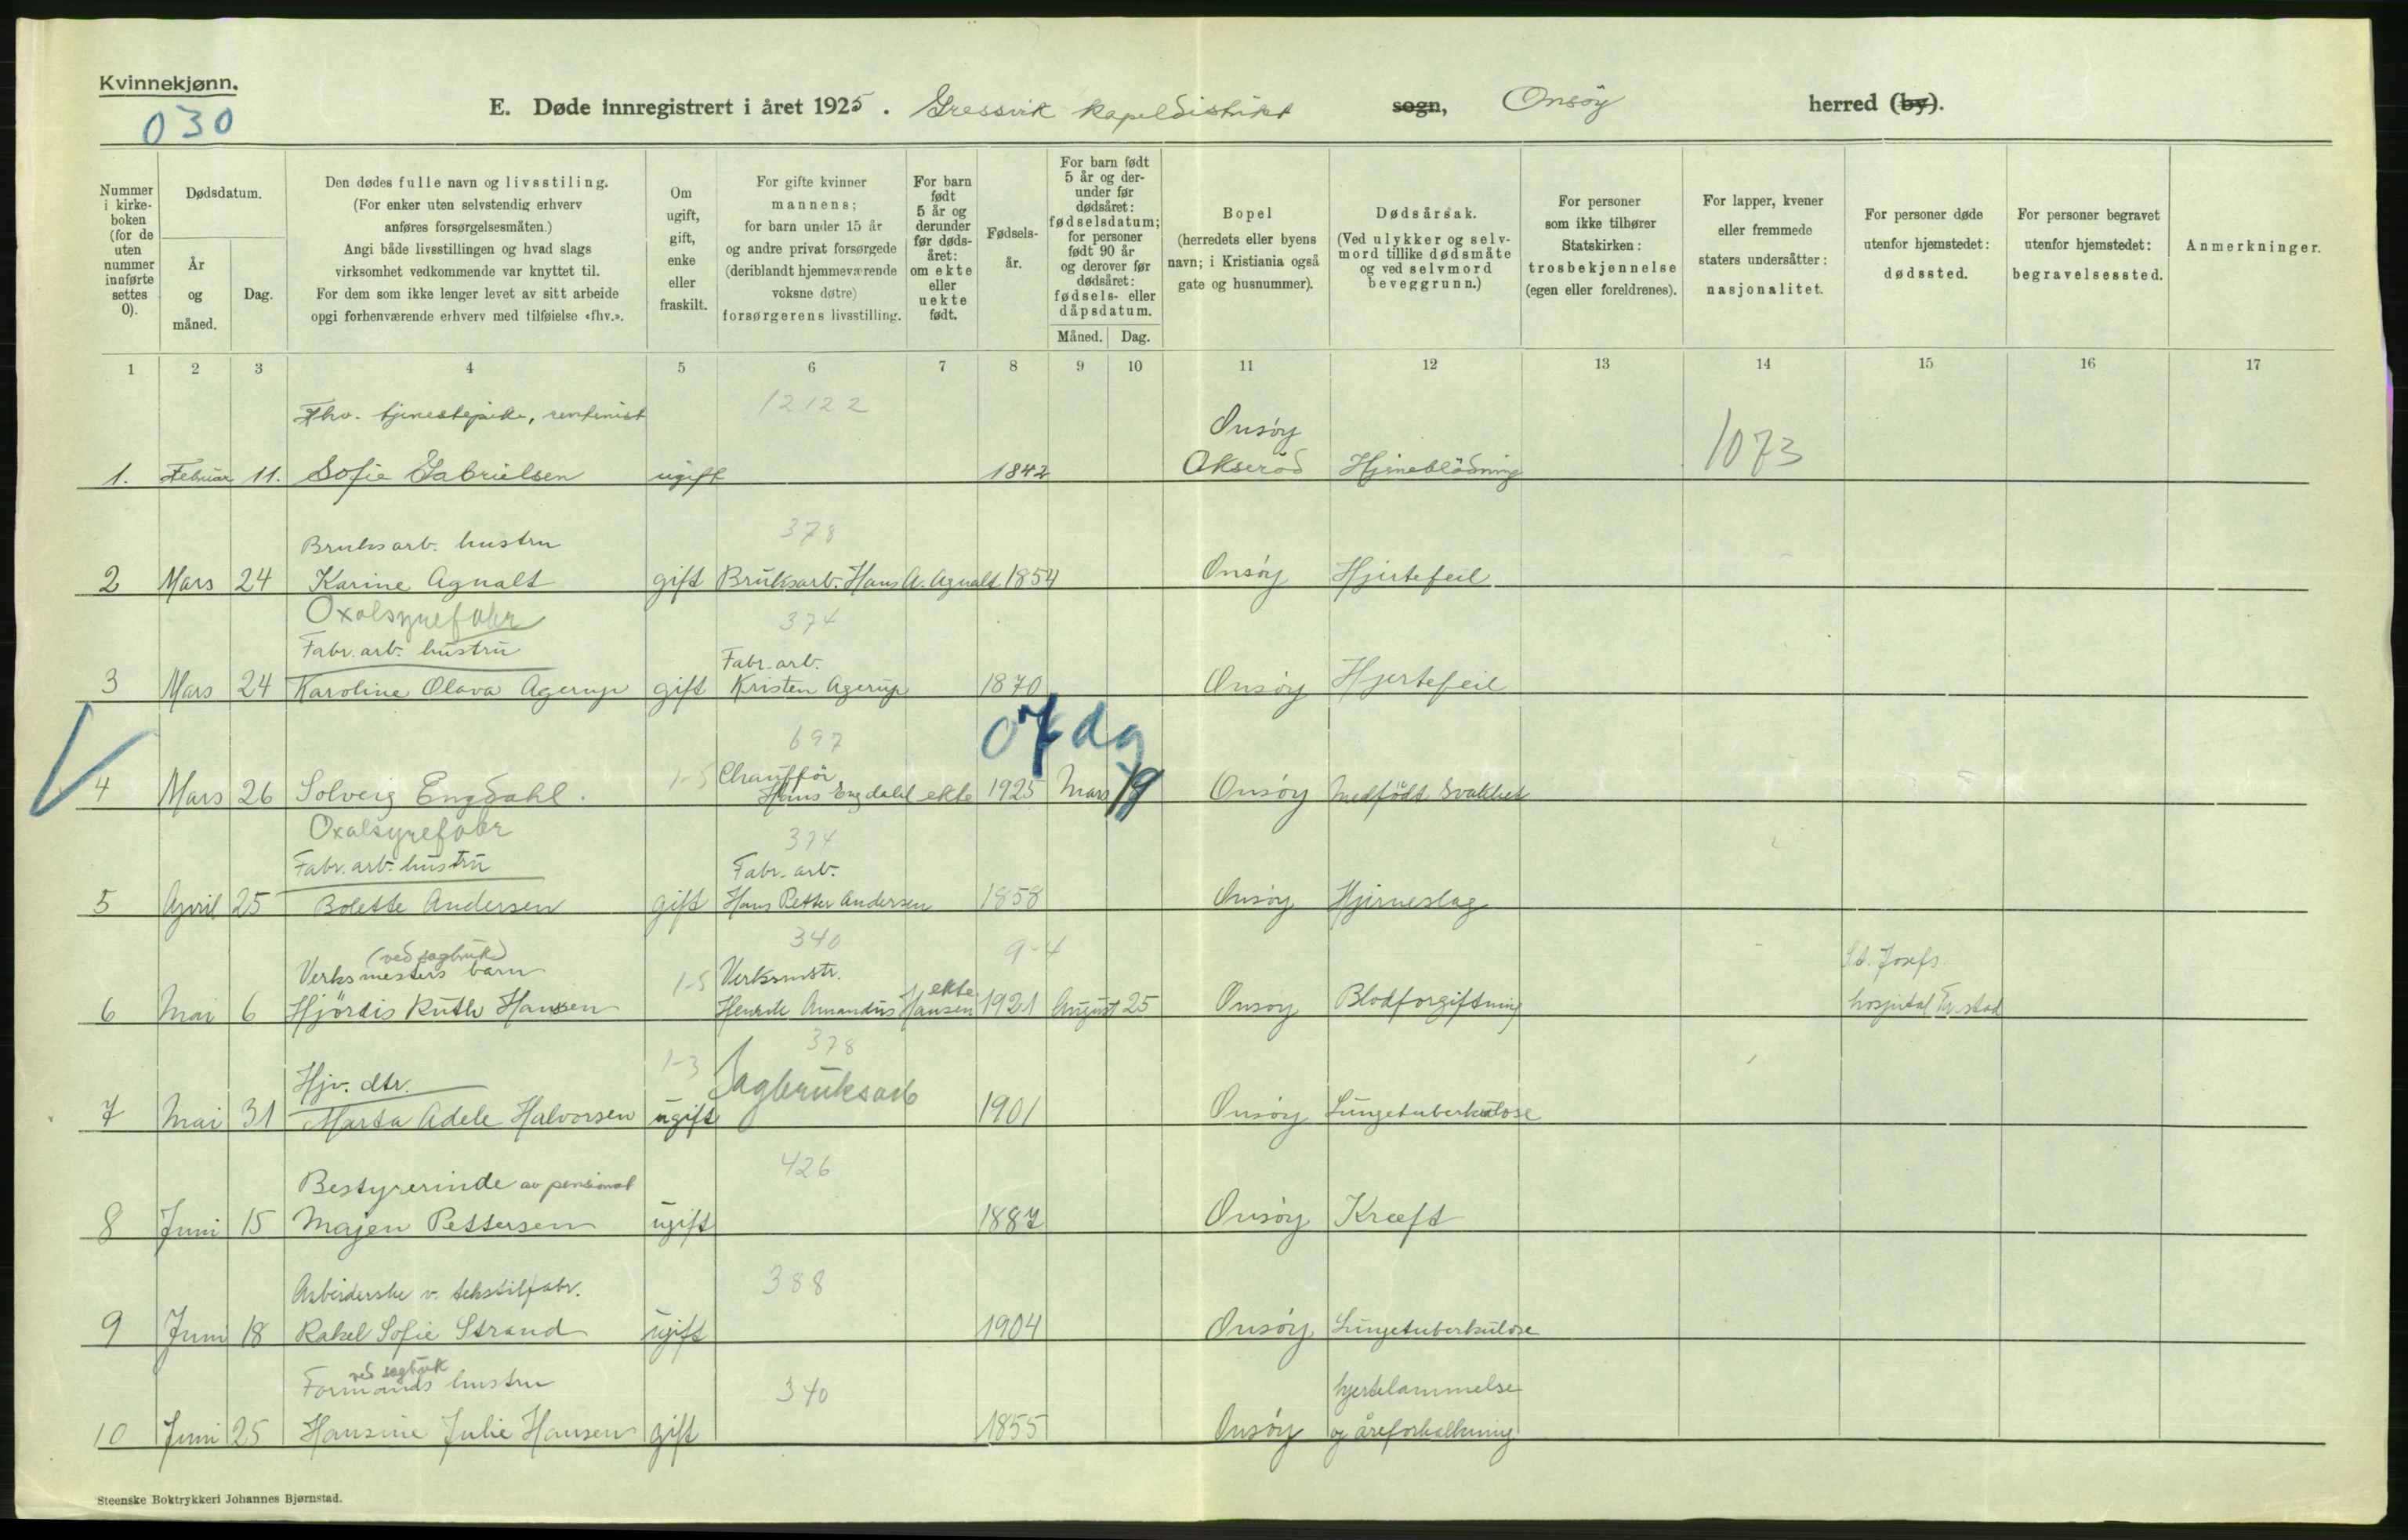 Kvinnekjønn.
030
E. Døde innregistrert i året 1925. Gressvik kapeldistrikt sogn, Onsøy herred (by).
Nummer i kirke- boken (for de uten nummer innførte settes 0).
Dødsdatum.
År og måned.
Dag.
Den dødes fulle navn og livsstilling.
(For enker uten selvstendig erhverv
anføres forsørgelsesmåten.)
Angi både livsstillingen og hvad slags
virksomhet vedkommende var knyttet til.
For dem som ikke lenger levet av sitt arbeide
opgi forhenværende erhverv med tilføielse «fhv.».
Om ugift, gift, enke eller fraskilt.
For gifte kvinner
mannens;
for barn under 15 år
og andre privat forsørgede
(deriblandt hjemmeværende
voksne døtre)
forsørgerens livsstilling.
For barn født 5 år og derunder før døds- året: om ekte eller uekte født.
Fødsels- år.
For barn født 5 år og der- under før dødsåret: fødselsdatum; for personer født 90 år og derover før dødsåret: fødsels- eller dåpsdatum.
Måned. Dag.
Bopel
(herredets eller byens
navn; i Kristiania også
gate og husnummer).
Dødsårsak.
(Ved ulykker og selv-
mord tillike dødsmåte
og ved selvmord
beveggrunn.)
For personer
som ikke tilhører
Statskirken:
trosbekjennelse
(egen eller foreldrenes).
For lapper, kvener
eller fremmede
staters undersåtter:
nasjonalitet.
For personer døde
utenfor hjemstedet:
dødssted.
For personer begravet
utenfor hjemstedet:
begravelsessted.
Anmerkninger.
1 2 3 4 5 6 7 8 9 10 11 12 13 14 15 16 17
Fhv. tjenestepike, rentenist 12122 Onsøy 1073
1. Februar 11. Sofie Gabrielsen ugift 1842 Akserød Hjerneblödning
Bruksarb. hustru 378
2 Mars 24 Karine Agnalt gift Bruksarb. Hans A. Agnalt 1854 Onsøy Hjertefeil
Oxalsyrefabr 374
Fabr. arb. hustru Fabr. arb.
3 Mars 24 Karoline Olava Agerup gift Kristen Agerup 1870 Onsøy Hjertefeil
697 07 dg
1-5 Chaufför
4 Mars 26 Solveig Engdahl. Hans Engdahl ekte 1925 Mars 19 Onsøy Medfödt svakhet
Oxalsyrefabr 374
Fabr. arb. hustru Fabr. arb.
5 April 25 Bolette Andersen gift Hans Petter Andersen 1858 Onsøy Hjerneslag
(ved sagbruk) 340 9-4 St. Josefs
Verksmesters barn 1-5 Verksmstr. ekte
6 Mai 6 Hjördis Ruth Hansen Henrik Amandus Hansen 1921 August 25 Onsøy Blodforgiftning hospital Fr.stad
378
Hjv. dtr. 1-3 Sagbruksarb
7 Mai 31 Marta Adele Halvorsen ugift 1901 Onsøy Lungetuberkulose
Bestyrerinde av pensionat 426
8 Juni 15 Majen Pettersen ugift 1887 Onsøy Kræft
Arbeiderske v. tekstilfabr. 388
9 Juni 18 Rakel Sofie Strand ugift 1904 Onsøy Lungetuberkulose
ved sagbruk
Formands hustru 340 hjertelammelse
10 Juni 25 Hansine Julie Hansen gift 1855 Onsøy og åreforkalkning
Steenske Boktrykkeri Johannes Bjørnstad.